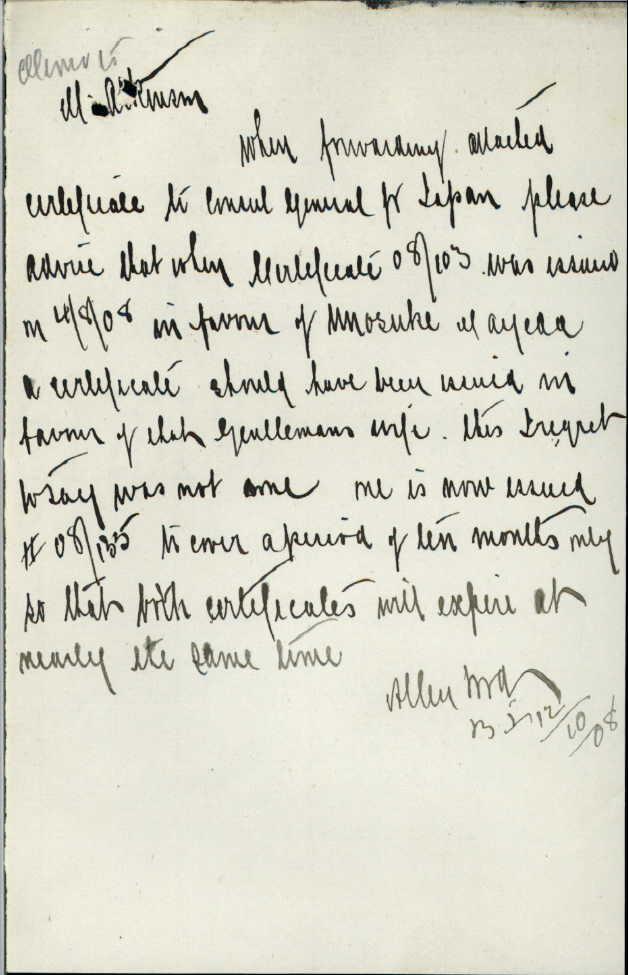 Memo to
Mr Atkinson
When forwarding attached
certificate to Consul General for Japan please
advise that when Certificate 08/103 was issued
on 4/8/08 in favour of Unosuke Mayeda
a certificate should have been issued in
favour of that Gentlemans wife. This I regret
to say was not done one is now issued
# 08/135 to cover a period of ten months only
so that both certificates will expire at
nearly the same time
12/10/08